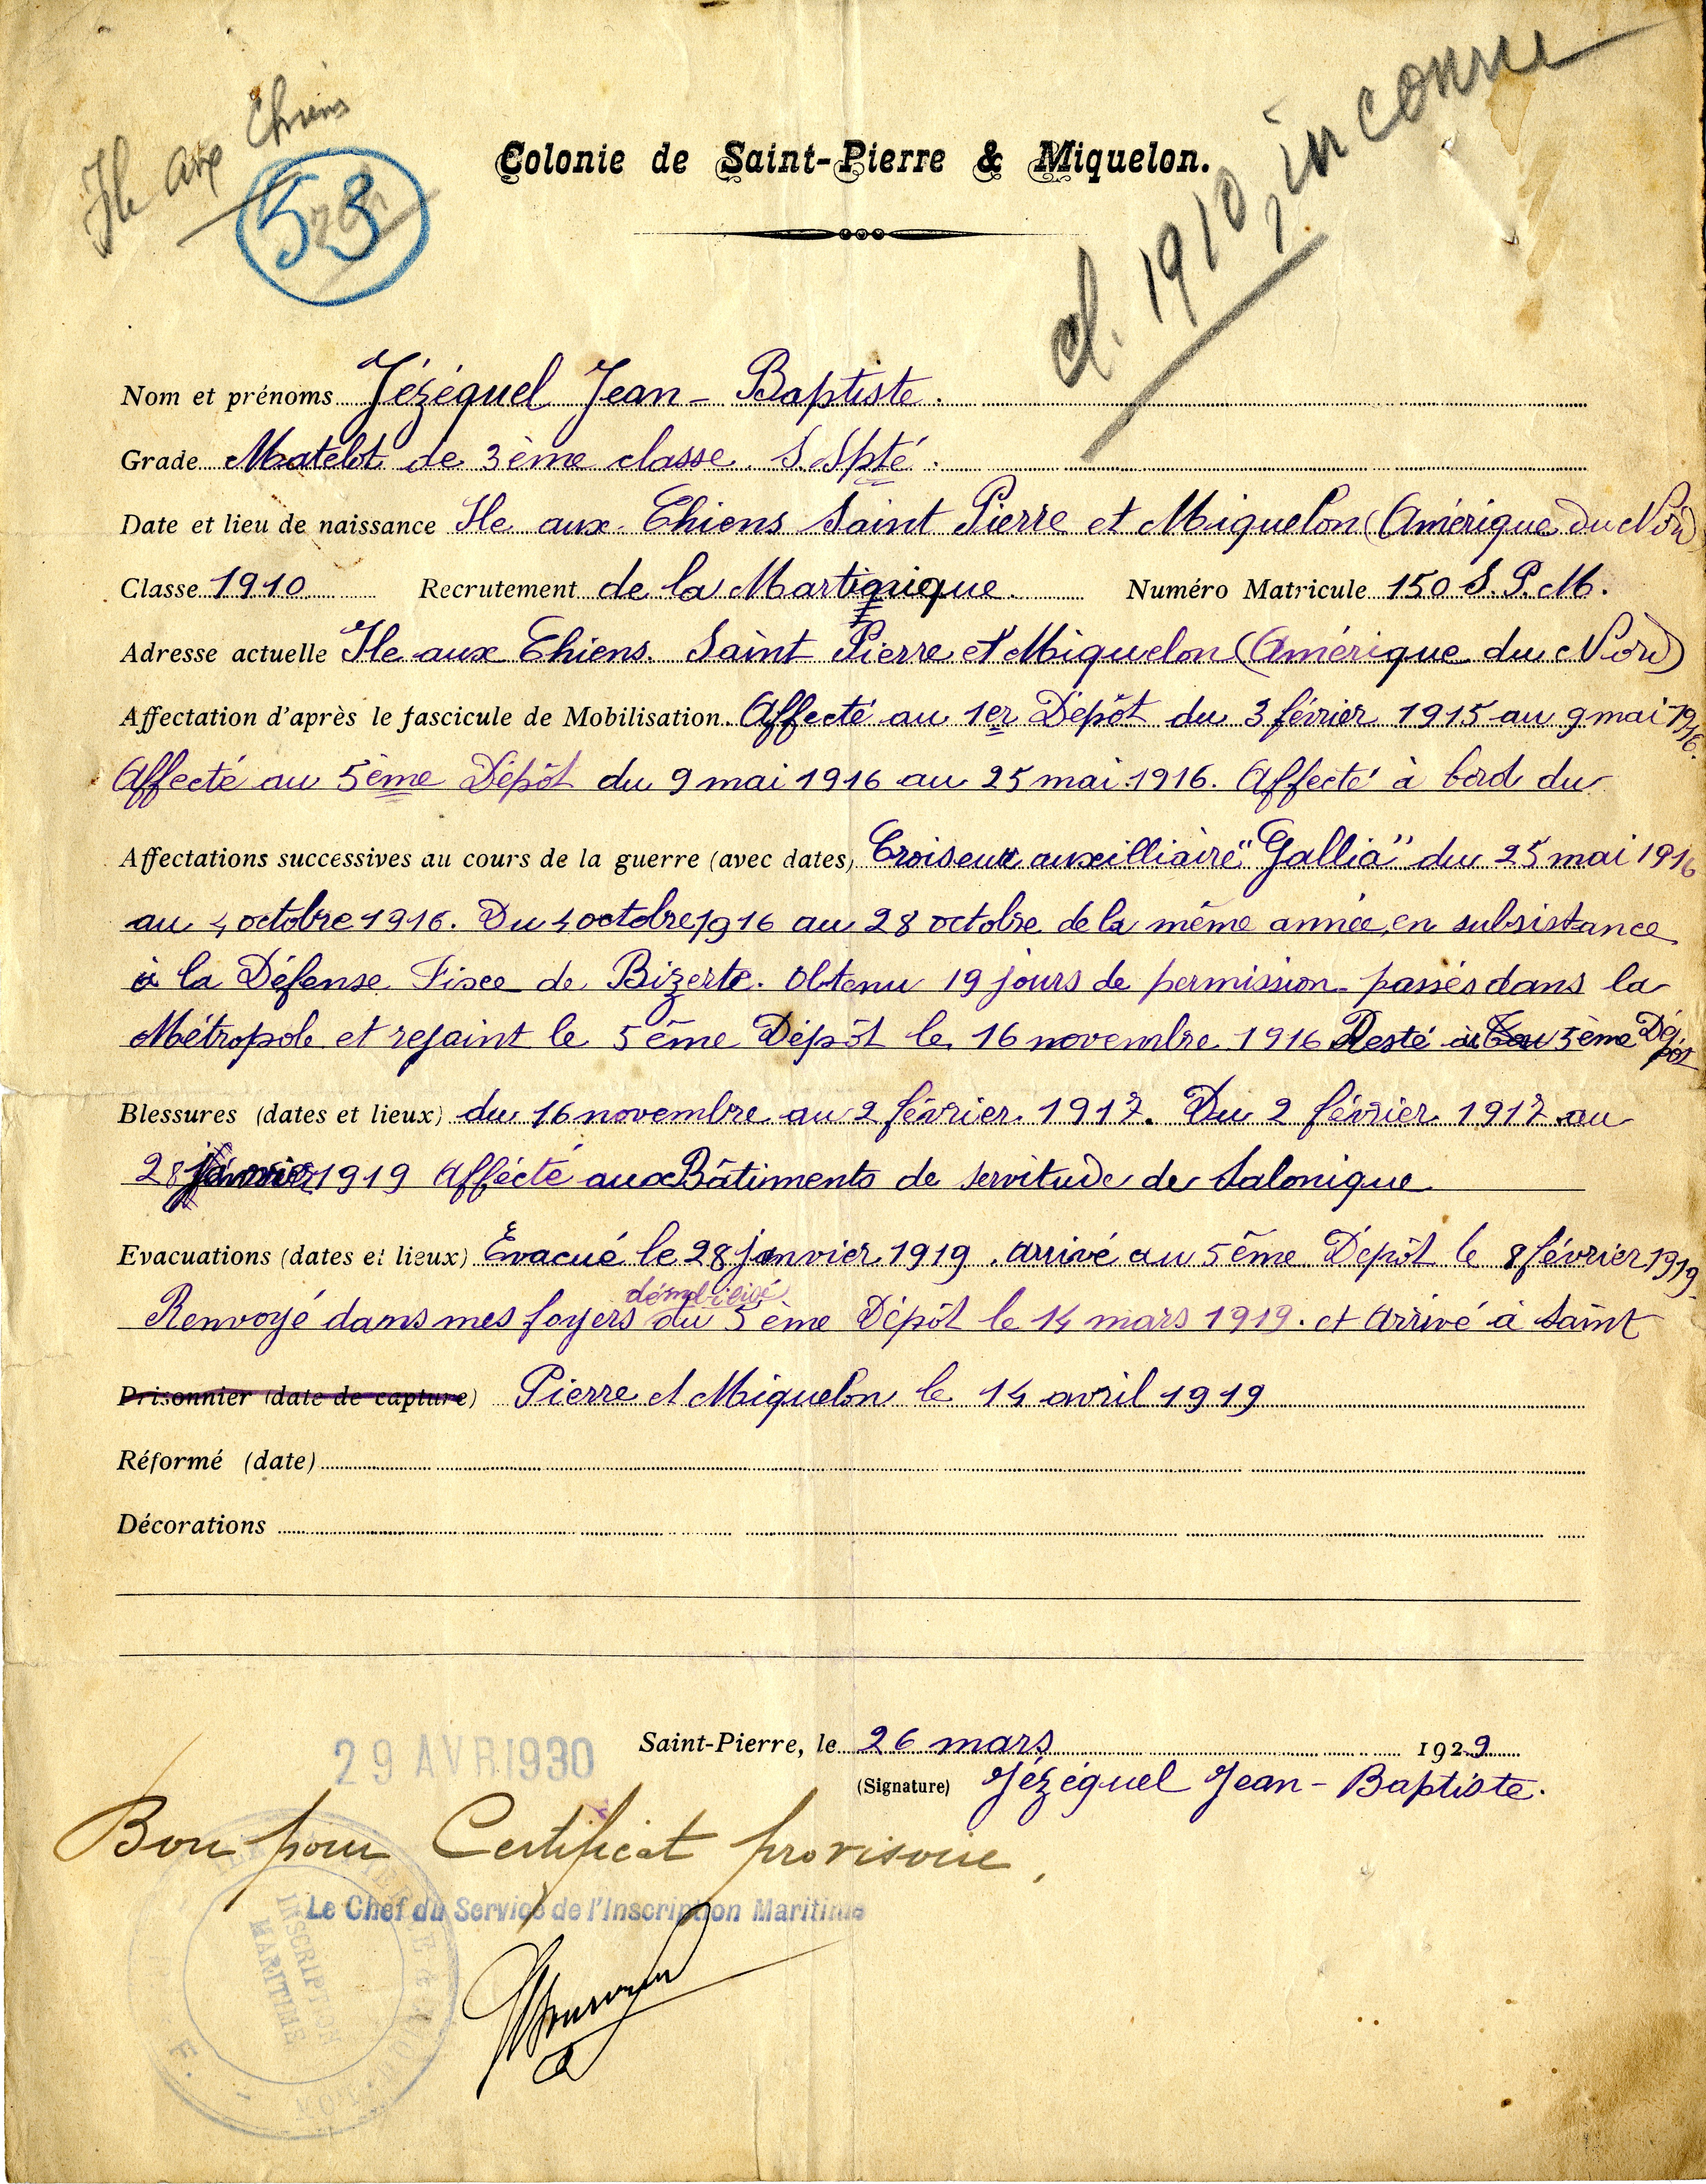 Ile aux Chiens
53
cl. 1910, inconnu
Colonie de Saint-Pierre & Miquelon.
Nom et prénoms Jézéquel Jean-Baptiste.
Grade Matelot de 3ème classe S. Spté.
Date et lieu de naissance Ile aux Chiens Saint Pierre et Miquelon (Amérique du Nord)
Classe 1910 Recrutement de la Martinique. Numéro Matricule 150 S.P.M.
Adresse actuelle Ile aux Chiens. Saint Pierre et Miquelon (Amérique du Nord)
Affectation d'après le fascicule de Mobilisation. Affecté au 1er Dépôt du 3 février 1915 au 9 mai 1916.
Affecté au 5ème Dépôt du 9 mai 1916 au 25 mai 1916. Affecté à bord du
Affectations successives au cours de la guerre (avec dates) Croiseur auxilliaire "Gallia" du 25 mai 1916
au 4 octobre 1916. Du 4 octobre 1916 au 28 octobre de la même année, en subsistance
à la Défense Fixe de Bizerte. Obtenu 19 jours de permission passés dans la
Métropole et rejoint le 5ème Dépôt le 16 novembre 1916 Resté au 5ème Dépôt
Blessures (dates et lieux) du 16 novembre au 2 février 1917. Du 2 février 1917 au
28 janvier 1919 Affecté aux Bâtiments de servitude de Salonique
Evacuations (dates et lieux) Evacué le 28 janvier 1919. arrivé au 5ème Dépôt le 8 février 1919.
démobilisé
Renvoyé dans mes foyers du 5ème Dépôt le 14 mars 1919. et Arrivé à Saint
Prisonnier (date de capture) Pierre et Miquelon le 14 avril 1919
Réformé (date)
Décorations
Saint-Pierre, le 26 mars 1929
29 AVR 1930
(Signature) Jézéquel Jean-Baptiste.
Bon pour Certificat provisoire,
Le Chef du Service de l'Inscription Maritime
INSCRIPTION
MARITIME